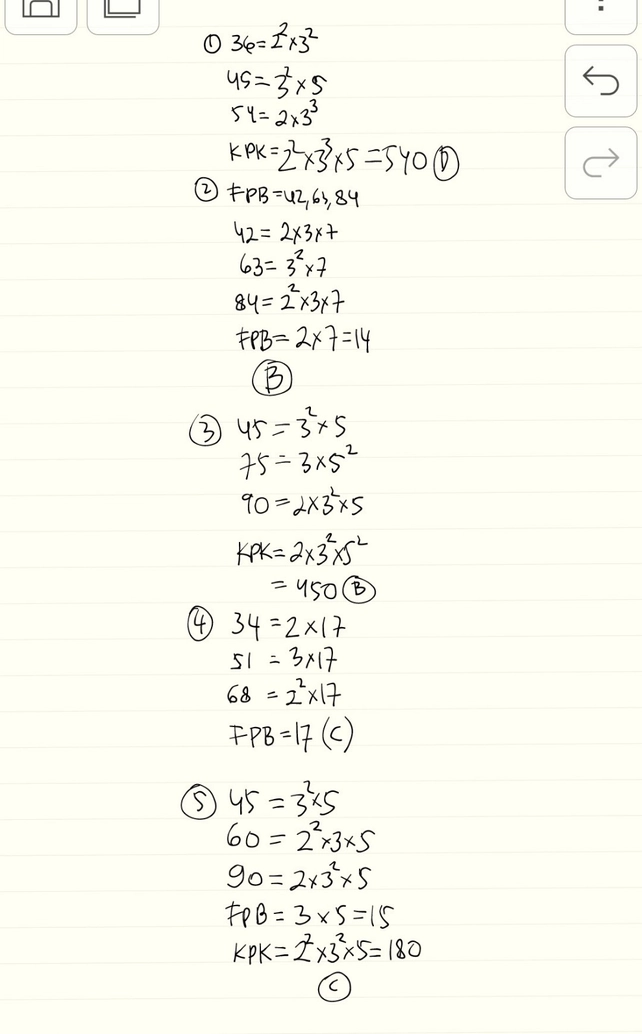 ① 36=2²×3²
45=3²×5
54=2×3³
KPK=2²×3³×5=540 Ⓓ
② FPB=42,63,84
42=2×3×7
63=3²×7
84=2²×3×7
FPB=2×7=14
Ⓑ
③ 45=3²×5
75=3×5²
90=2×3²×5
KPK=2×3²×5²
=450 Ⓑ
④ 34=2×17
51=3×17
68=2²×17
FPB=17 (C)
⑤ 45=3²×5
60=2²×3×5
90=2×3²×5
FPB=3×5=15
KPK=2²×3²×5=180
Ⓒ